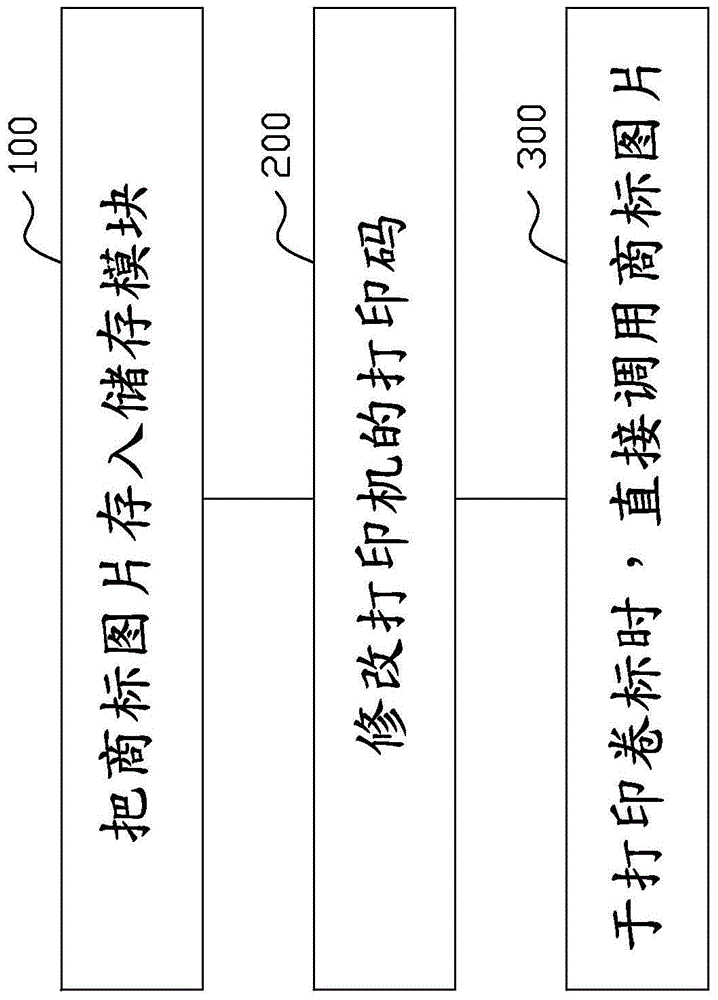 100
把商标图片存入储存模块
200
修改打印机的打印码
300
于打印卷标时，直接调用商标图片